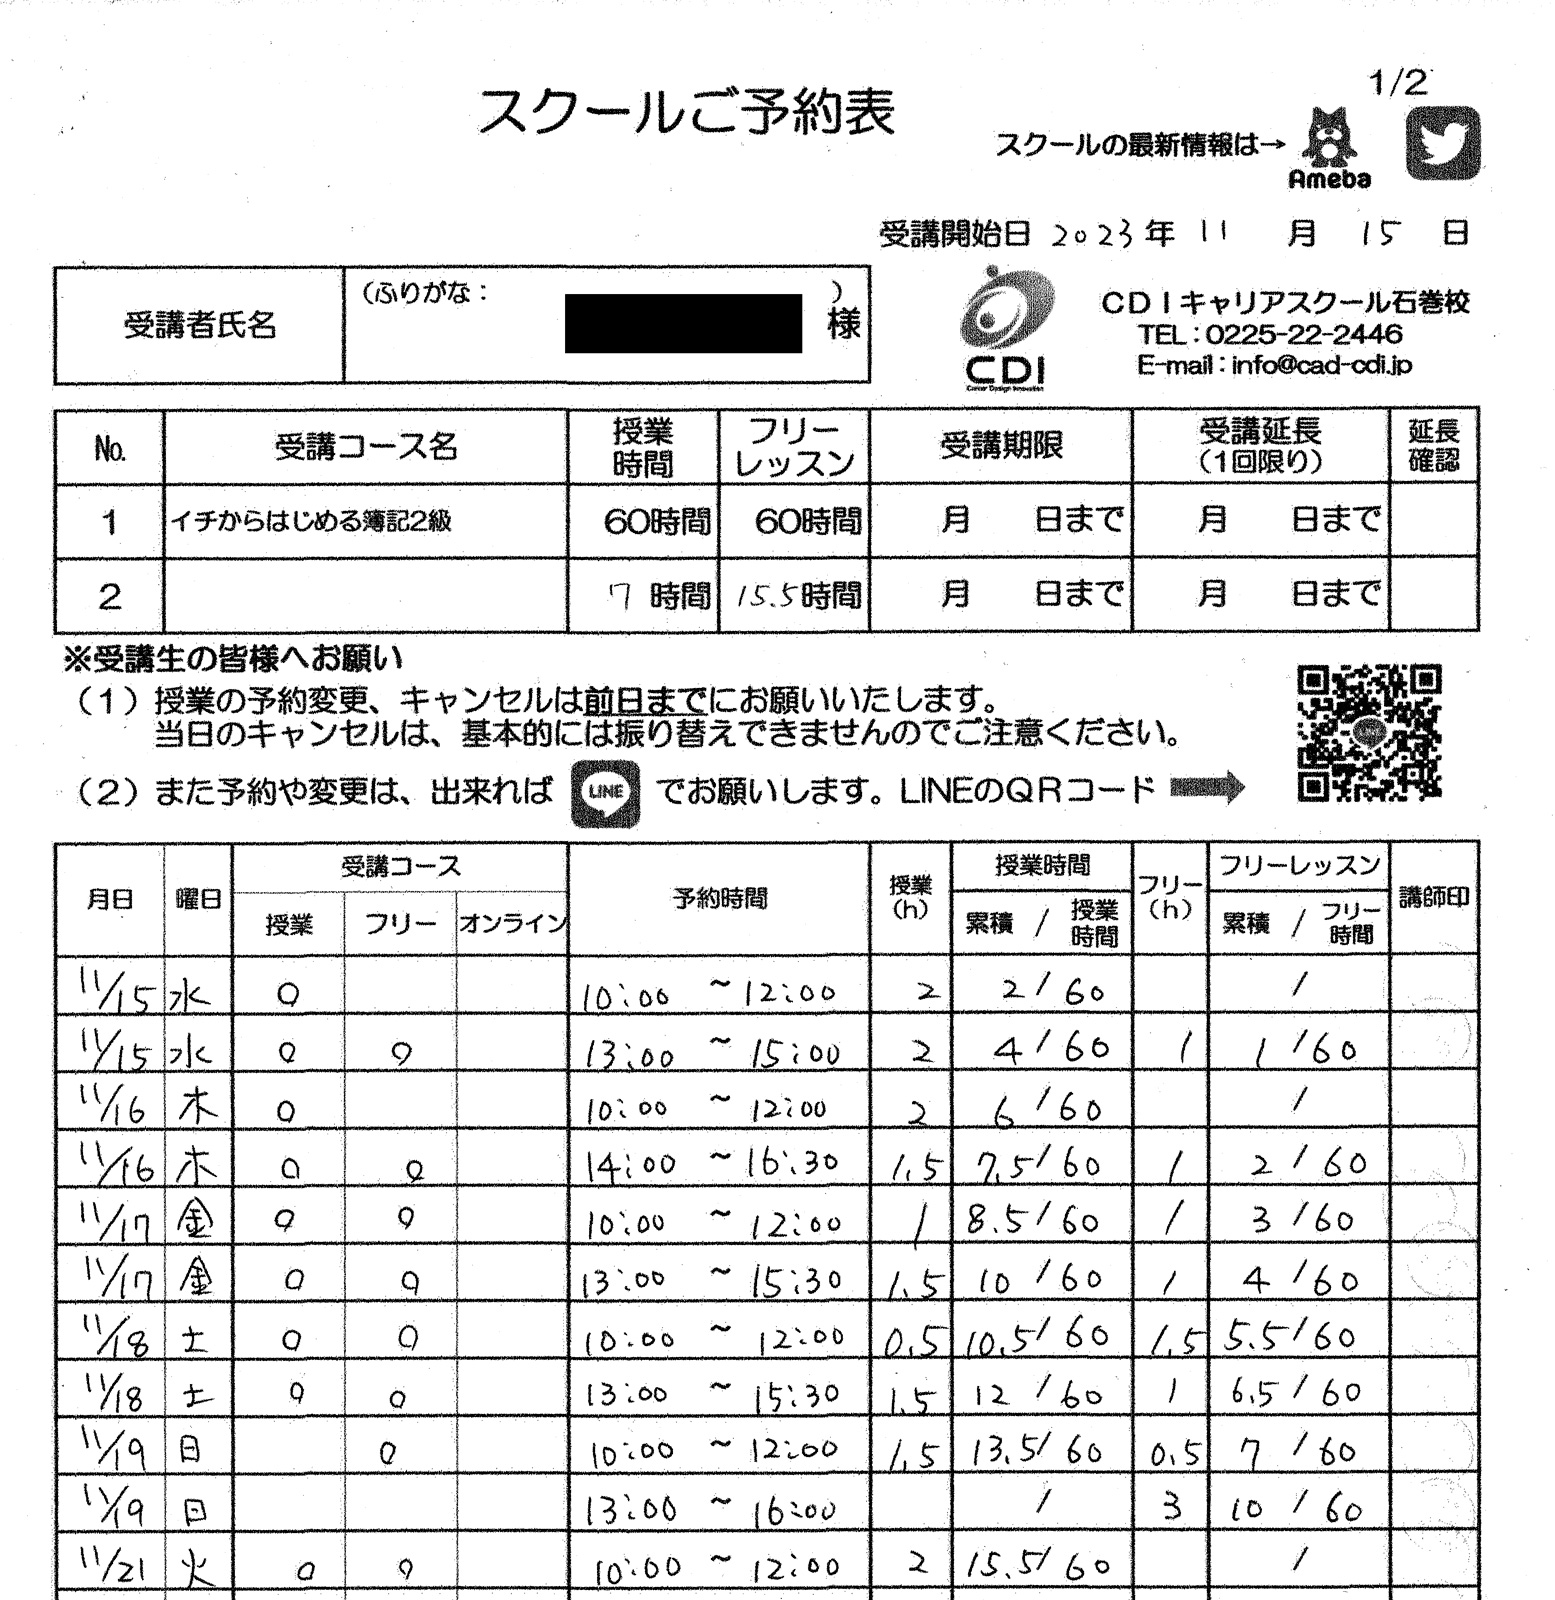 1/2
スクールご予約表
スクールの最新情報は→ Ameba
受講開始日 2023年 11 月 15 日
受講者氏名 (ふりがな: ) 様
CDI
Career Design Innovation
CDIキャリアスクール石巻校
TEL:0225-22-2446
E-mail:info@cad-cdi.jp
No. 受講コース名 授業時間 フリーレッスン 受講期限 受講延長(1回限り) 延長確認
1 イチからはじめる簿記2級 60時間 60時間 月 日まで 月 日まで
2 7 時間 15.5時間 月 日まで 月 日まで
※受講生の皆様へお願い
(1)授業の予約変更、キャンセルは前日までにお願いいたします。
当日のキャンセルは、基本的には振り替えできませんのでご注意ください。
(2)また予約や変更は、出来れば LINE でお願いします。LINEのQRコード
月日 曜日 受講コース 予約時間 授業(h) 授業時間 フリー(h) フリーレッスン 講師印
授業 フリー オンライン 累積 / 授業時間 累積 / フリー時間
11/15 水 ○ 10:00 ~ 12:00 2 2 / 60 /
11/15 水 ○ ○ 13:00 ~ 15:00 2 4 / 60 1 1 / 60
11/16 木 ○ 10:00 ~ 12:00 2 6 / 60 /
11/16 木 ○ ○ 14:00 ~ 16:30 1.5 7.5 / 60 1 2 / 60
11/17 金 ○ ○ 10:00 ~ 12:00 1 8.5 / 60 1 3 / 60
11/17 金 ○ ○ 13:00 ~ 15:30 1.5 10 / 60 1 4 / 60
11/18 土 ○ ○ 10:00 ~ 12:00 0.5 10.5 / 60 1.5 5.5 / 60
11/18 土 ○ ○ 13:00 ~ 15:30 1.5 12 / 60 1 6.5 / 60
11/19 日 ○ 10:00 ~ 12:00 1.5 13.5 / 60 0.5 7 / 60
11/19 日 13:00 ~ 16:00 / 3 10 / 60
11/21 火 ○ ○ 10:00 ~ 12:00 2 15.5 / 60 /